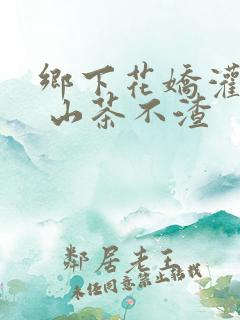 鄉下花嬌灌
山茶不渣
鄰居老王
未經同意禁止轉載